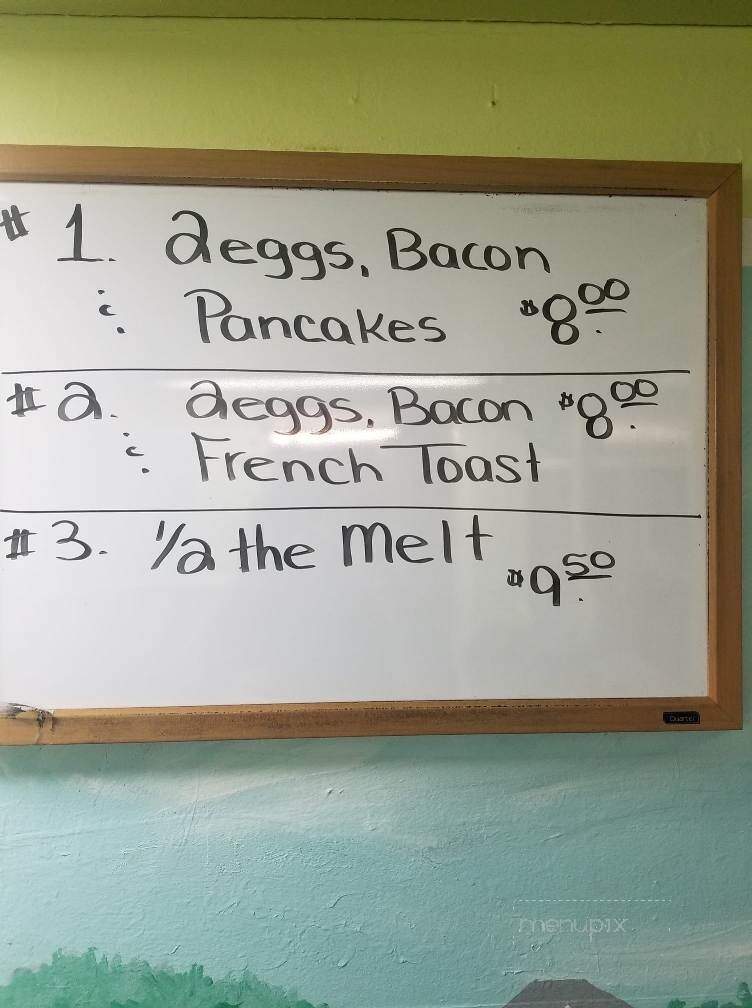 #1. 2eggs, Bacon
& Pancakes $8.00
#2. 2eggs, Bacon $8.00
& French Toast
#3. 1/2 the melt $9.50
Quartet
menupix